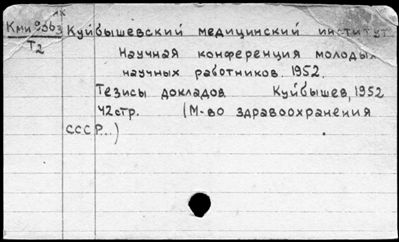 Куйбышевский медицинский институт
Т2
Научная конференция молодых
научных работников. 1952.
Тезисы докладов Куйбышев, 1952
42стр. (М-во здравоохранения
СССР...)